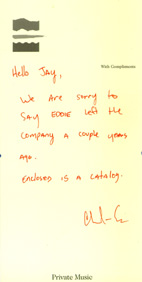 With Compliments
Hello JAY,
We are sorry to
SAY EDDIE left the
company a couple years
ago.
Enclosed is a catalog.
Private Music